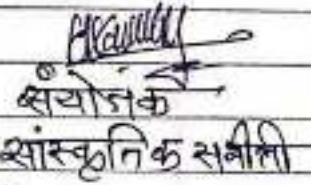 संयोजक
सांस्कृतिक समीती